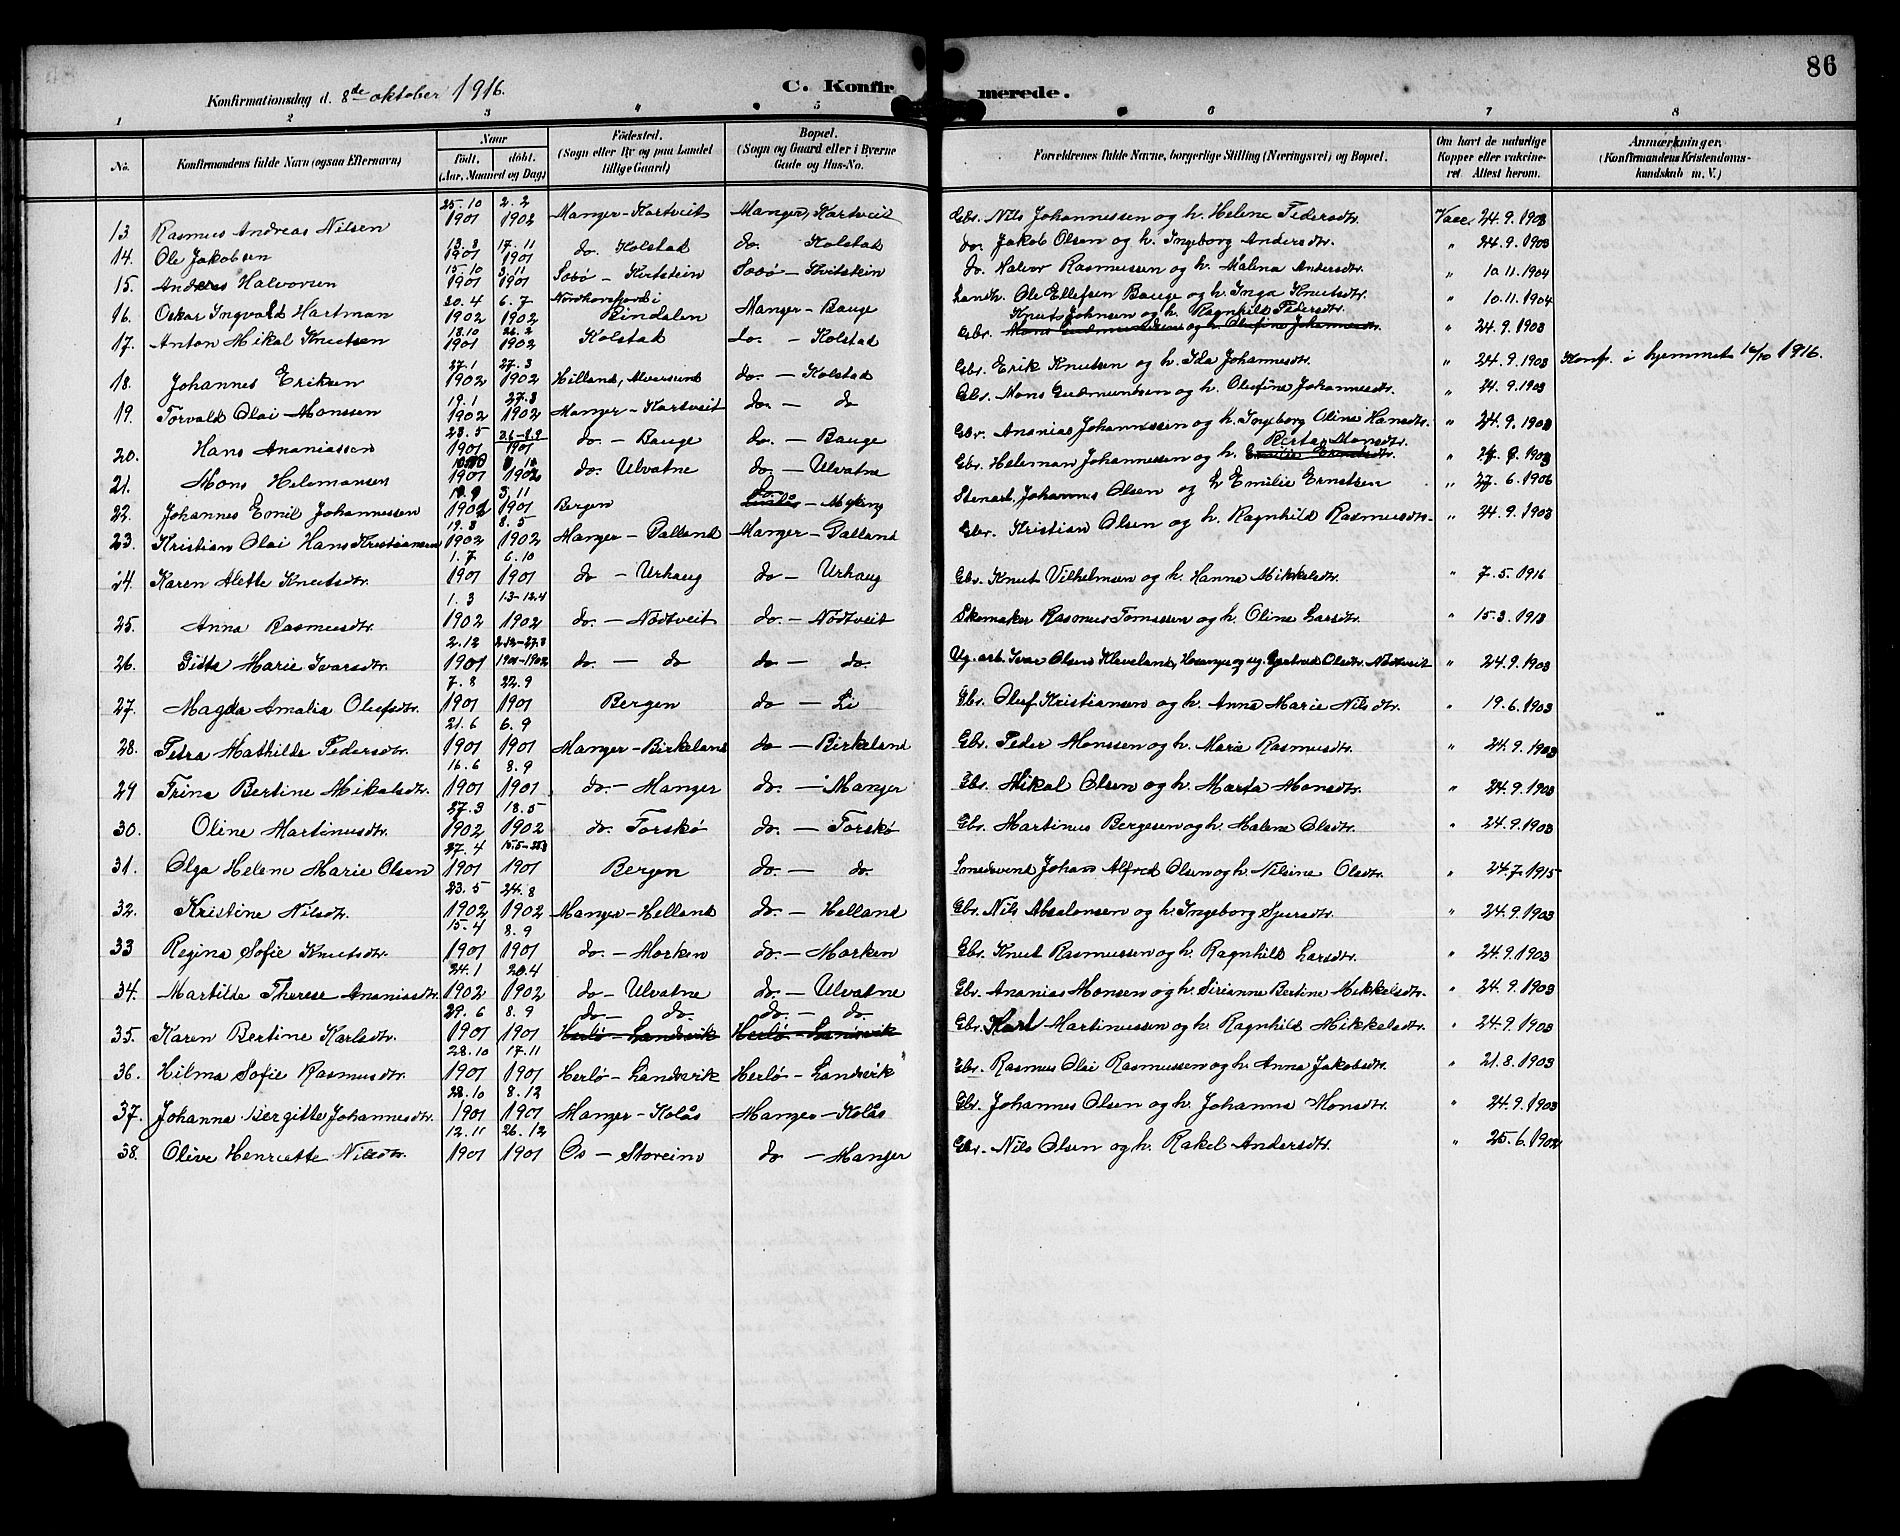 86
Konfirmationsdag d. 8de oktober 1916.
C. Konfirmerede.
1 2 3 4 5 6 7 8
No. Konfirmandens fulde Navn (ogsaa Efternavn) Naar født. døbt. (Aar, Maaned og Dag) Fødested. (Sogn eller By og paa Landet tillige Gaard) Bopæl. (Sogn og Gaard eller i Byerne Gade og Hus-No. Forældrenes fulde Navne, borgerlige Stilling (Næringsvei) og Bopæl. Om havt de naturlige Kopper eller vakcineret. Attest herom. Anmærkninger. (Konfirmandens Kristendomskundskab m. V.)
13 Rasmus Andreas Nilsen 25.10 1901 2.2 1902 Manger - Kartveit Manger, Kartveit Gbr. Nils Johannessen og h. Helene Pedersdtr. Vacc. 24.9.1903
14. Ole Jakobsen 13.8 1901 17.11 1901 do. Kolstad do. Kolstad do. Jakob Olsen og h. Ingeborg Andersdtr. " 24.9.1903
15. Anders Halvorsen 15.10 1901 3.11 1901 Sæbø - Kvitstein Sæbø - Kvitstein do. Halvor Rasmussen og h. Malena Andersdtr. " 10.11.1904
16. Oskar Ingvald Hartman 20.4 1902 6.7 1902 Bindalen Manger - Bauge Landh. Ole Ellefsen Bauge og h. Inga Knutsdtr. " 10.11.1904
17. Anton Mikal Knutsen 18.10 1901 26.2 1902 Kolstad do. - Kolstad Gbr. Knut Johnsen og h. Ragnhild Pedersdtr. Mons Gudmundsen og h. Olufine Johannesdtr. " 24.9.1903
18. Johannes Eriksen 27.1 1902 27.3 1902 Hilland, Alversund do. - Kolstad Gbr. Erik Knutsen og h. Ida Johannesdtr. " 24.9.1903 Konf. i hjemmet 1916.
19. Torvald Olai Monssen 19.1 1902 27.3 1902 Manger - Kartveit do. - do Gbr. Mons Gudmundsen og h. Olufine Johannesdtr. " 24.9.1903
20. Hans Ananiassen 23.5 1901 2.6-8.9 1901 do. - Bauge do. - Bauge Gbr. Ananias Johannessen og h. Ingeborg Oline Hansdtr. " 24.9.1903
21. Mons Helemansen 1901 1902 do. Ulvatne do. - Ulvatne Gbr. Heleman Johannessen og h. Berta Monsdtr. Emilie Ernstsdtr. " 24.9.1903
22. Johannes Emil Johannessen 19.9 1901 3.11 1901 Bergen do. - Myking Johannes Olsen og h. Emilie Ernstsen " 27.6.1906
23. Kristian Olai Hans Kristiansen 19.3 1902 8.5 1902 Manger - Palland Manger - Palland Gbr. Kristian Olsen og h. Ragnhild Rasmusdtr. " 24.9.1903
24. Karen Alette Knutsdtr. 1.7 1901 6.10 1901 do - Urhaug do - Urhaug Gbr. Knut Vilhelmsen og h. Hanna Mikkelsdtr. " 7.5.1916
25. Anna Rasmusdtr. 1.3 1902 1.3-12.4 1902 do. - Nödtveit do. - Nödtveit Skomaker Rasmus Tomassen og h. Oline Larsdtr. " 15.3.1913
26. Gitta Marie Ivarsdtr. 2.12 1901 2.12-27.3 1901-1902 do. - do do - do. Ug. arb. Ivar Olsen Kleveland, Hauge og ug. Gjertrud Olsdtr. Nödtveit " 24.9.1903
27. Magda Amalia Olufsdtr. 7.8 1901 22.9 1901 Bergen do - Li Gbr. Oluf Kristiansen og h. Anna Marie Nilsdtr. " 19.6.1903
28. Petra Mathilde Pedersdtr. 21.6 1901 6.9 1901 Manger - Birkeland do - Birkeland Gbr. Peder Monssen og h. Marie Rasmusdtr. " 24.9.1903
29 Trina Bertine Mikalsdtr. 16.6 1901 8.9 1901 do. - Manger do. - Manger Gbr. Mikal Olsen og h. Marta Monsdtr. " 24.9.1903
30. Oline Martinusdtr. 27.3 1902 18.5 1902 do. Torskö do. - Torskö Gbr. Martinus Bergesen og h. Malene Olsdtr. " 24.9.1903
31. Olga Helene Marie Olsen 27.4 1901 1901 Bergen do. - do. Smedsvend Johans Alfred Olsen og h. Nilsine Olsdtr. " 24.7.1915
32. Kristine Nilsdtr. 23.5 1902 24.8 1902 Manger - Helland do. - Helland Gbr. Nils Absalonsen og h. Ingeborg Sjursdtr. " 24.9.1903
33 Regina Sofie Knutsdtr. 15.4 1901 8.9 1901 do. - Morken do. - Morken Gbr. Knut Rasmussen og h. Ragnhild Larsdtr. " 24.9.1903
34. Martilde Therese Ananiasdtr. 24.1 1902 20.4 1902 do - Ulvatne do. - Ulvatne Gbr. Ananias Monsen og h. Sirianne Bertine Mikkelsdtr. " 24.9.1903
35. Karen Bertine Karlsdtr. 29.6 1901 8.9 1901 do - do. Herlö - Landsvik do. - do. Herlö - Landsvik Gbr. Karl Martinussen og h. Ragnhild Mikkelsdtr. " 24.9.1903
36. Hilma Sofie Rasmusdtr. 28.10 1901 17.11 1901 Herlö - Landsvik Herlö - Landsvik Gbr. Rasmus Olai Rasmussen og h. Anna Jakobsdtr. " 21.8.1903
37. Johanna Bergitte Johannesdtr. 22.10 1901 8.12 1901 Manger - Kolås Manger - Kolås Gbr. Johannes Olsen og h. Johanna Monsdtr. " 24.9.1903
38. Olive Henriette Nilsdtr. 12.11 1901 26.12 1901 Os - Storeino do - Manger Gbr. Nils Olsen og h. Rakel Andersdtr. " 25.6.1902